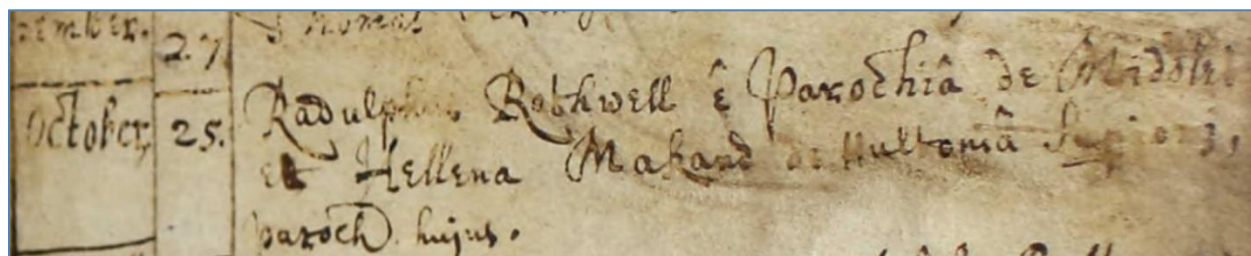 27
Thomas
October, 25. Radulphus Rothwell ê Parochiâ de
et Hellena Makand de Hultoniâ Superiori,
paroch. hujus.